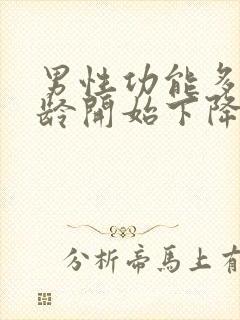 男性功能多
龄開始下降
分析帝馬上有